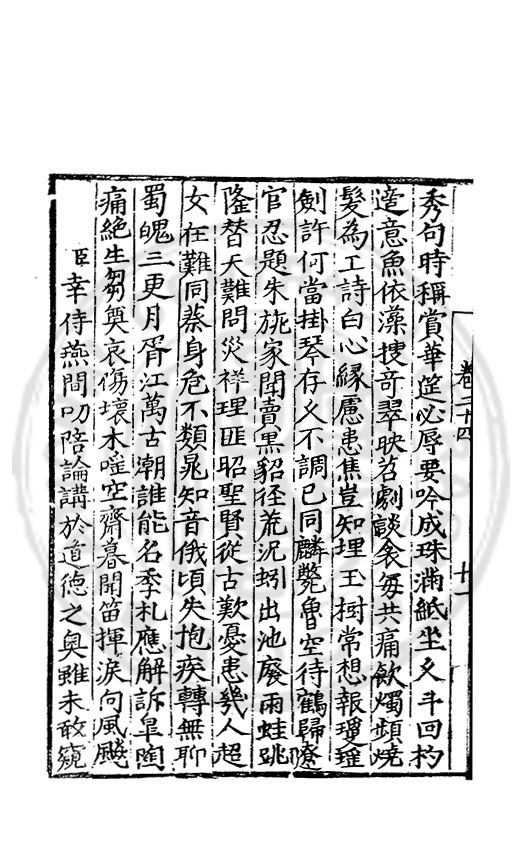 卷二十四　十一
秀句時稱賞華筵必辱要吟成珠滿紙坐久斗回杓
逹意魚依藻搜奇翠映苕劇談衾每共痛飲燭頻燒
髮為工詩白心縁慮患焦豈知埋玉樹常想報瓊瑤
劍許何當掛琴存久不調已同麟斃魯空待鶴歸遼
官忍題朱旐家聞賣黑貂徑荒況蚓出池廢雨蛙跳
隆替天難問災祥理匪昭聖賢從古歎憂患幾人超
女在難同蔡身危不類晁知音俄頃失抱疾轉無聊
蜀魄三更月胥江萬古潮誰能名季札應解訴皐陶
痛絕生芻奠哀傷壞木謡空齋暮聞笛揮淚向風飈
臣幸侍燕間叨陪論講於道德之奧雖未敢窺